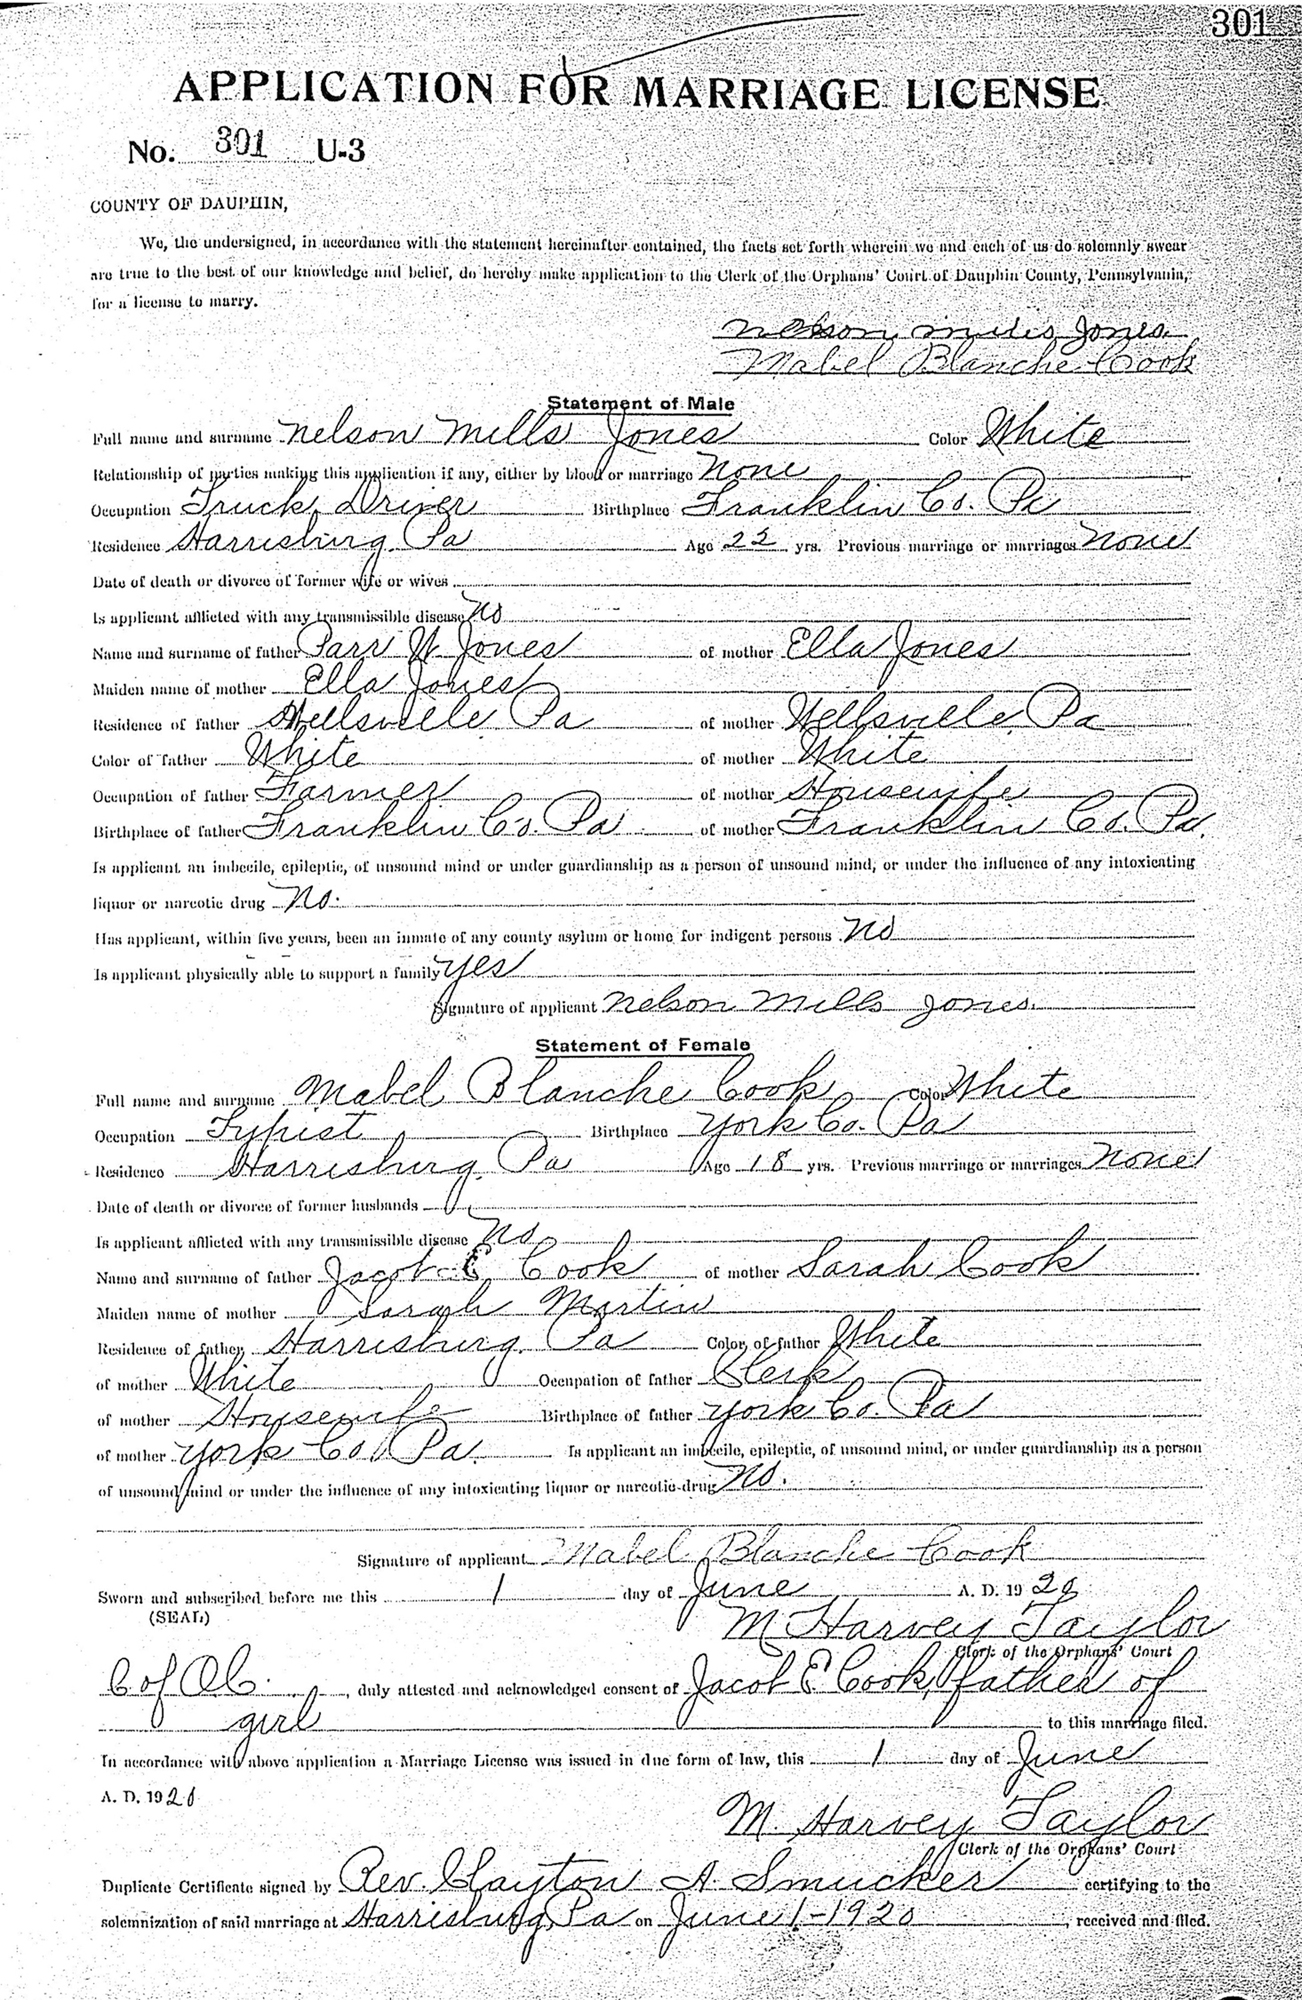 301
APPLICATION FOR MARRIAGE LICENSE.
No. 301 U-3
COUNTY OF DAUPHIN,
We, the undersigned, in accordance with the statement hereinafter contained, the facts set forth wherein we and each of us do solemnly swear
are true to the best of our knowledge and belief, do hereby make application to the Clerk of the Orphans' Court of Dauphin County, Pennsylvania,
for a license to marry.
Nelson Jones
Mabel Blanche Cook
Statement of Male
Full name and surname Nelson Mills Jones Color White
Relationship of parties making this application if any, either by blood or marriage None
Occupation Truck Driver Birthplace Franklin Co. Pa
Residence Harrisburg Pa Age 22 yrs. Previous marriage or marriages None
Date of death or divorce of former wife or wives
Is applicant afflicted with any transmissible disease No
Name and surname of father Parr W Jones of mother Ella Jones
Maiden name of mother Ella Jones
Residence of father Wellsville Pa of mother Wellsville Pa
Color of father White of mother White
Occupation of father Farmer of mother Housewife
Birthplace of father Franklin Co. Pa of mother Franklin Co. Pa.
Is applicant an imbecile, epileptic, of unsound mind or under guardianship as a person of unsound mind, or under the influence of any intoxicating
liquor or narcotic drug No.
Has applicant, within five years, been an inmate of any county asylum or home for indigent persons No
Is applicant physically able to support a family yes
Signature of applicant Nelson Mills Jones.
Statement of Female
Full name and surname Mabel Blanche Cook Color White
Occupation Typist Birthplace York Co. Pa
Residence Harrisburg Pa Age 18 yrs. Previous marriage or marriages None
Date of death or divorce of former husbands
Is applicant afflicted with any transmissible disease No
Name and surname of father Jacob E Cook of mother Sarah Cook
Maiden name of mother Sarah Martin
Residence of father Harrisburg. Pa Color of father White
of mother White Occupation of father Clerk
of mother Housewife Birthplace of father York Co. Pa
of mother York Co. Pa. Is applicant an imbecile, epileptic, of unsound mind, or under guardianship as a person
of unsound mind or under the influence of any intoxicating liquor or narcotic drug No.
Signature of applicant Mabel Blanche Cook
Sworn and subscribed before me this 1 day of June A. D. 1920
(SEAL) M Harvey Taylor
Clerk of the Orphans' Court
C of O.C. , duly attested and acknowledged consent of Jacob E Cook, father of
girl to this marriage filed.
In accordance with above application a Marriage License was issued in due form of law, this 1 day of June
A. D. 1920
M. Harvey Taylor
Clerk of the Orphans' Court
Duplicate Certificate signed by Rev. Clayton A. Smucker certifying to the
solemnization of said marriage at Harrisburg, Pa on June 1-1920 , received and filed.